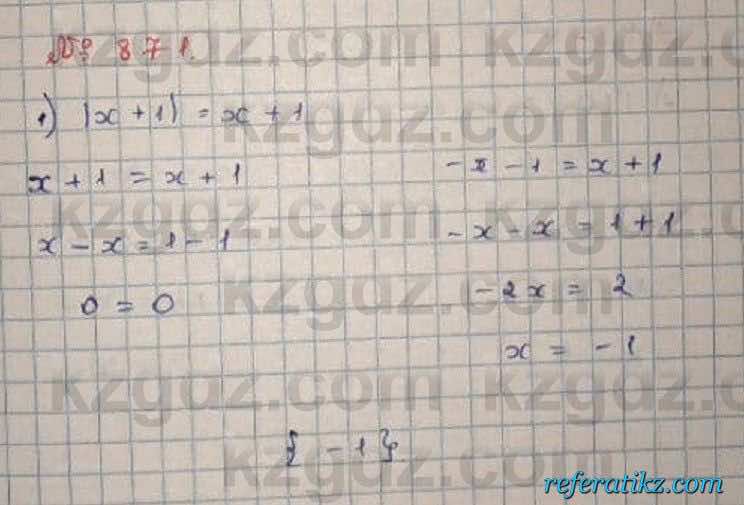 № 871.
1) |x + 1| = x + 1
x + 1 = x + 1
x - x = 1 - 1
0 = 0
- x - 1 = x + 1
- x - x = 1 + 1
- 2x = 2
x = - 1
{ - 1 }
kzgdz.com
referatikz.com